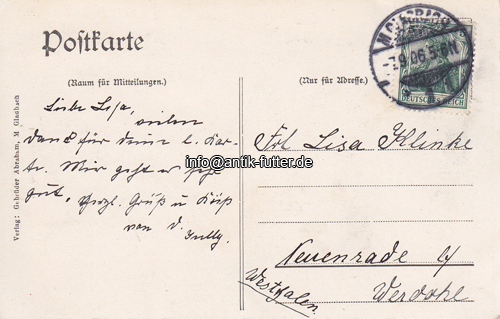 Postkarte
(Raum für Mitteilungen.)
(Nur für Adresse.)
M.GLADBACH
7.9.06.5-6N
DEUTSCHES REICH
Liebe Lisa,
vielen
Dank für Deine l. Kar-
te. Mir geht es sehr
gut. Herzl. Gruß u Kuß
von d.
Frl. Lisa Klinke
info@antik-futter.de
Neuenrade b/
Werdohl
Westfalen
Verlag: Gebrüder Abraham, M Gladbach